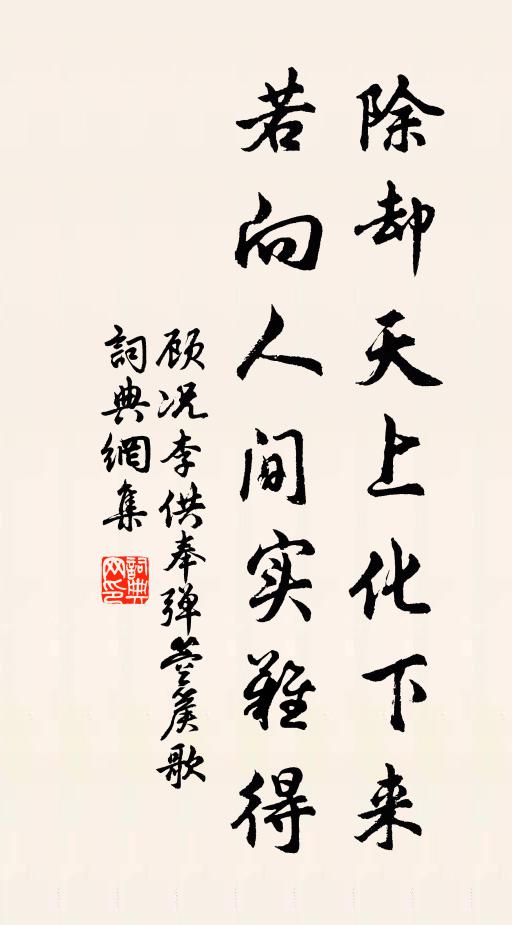 除却天上化下来
若向人间实難得
顾况李供奉弹箜篌歌
詞典網集
詞典网印